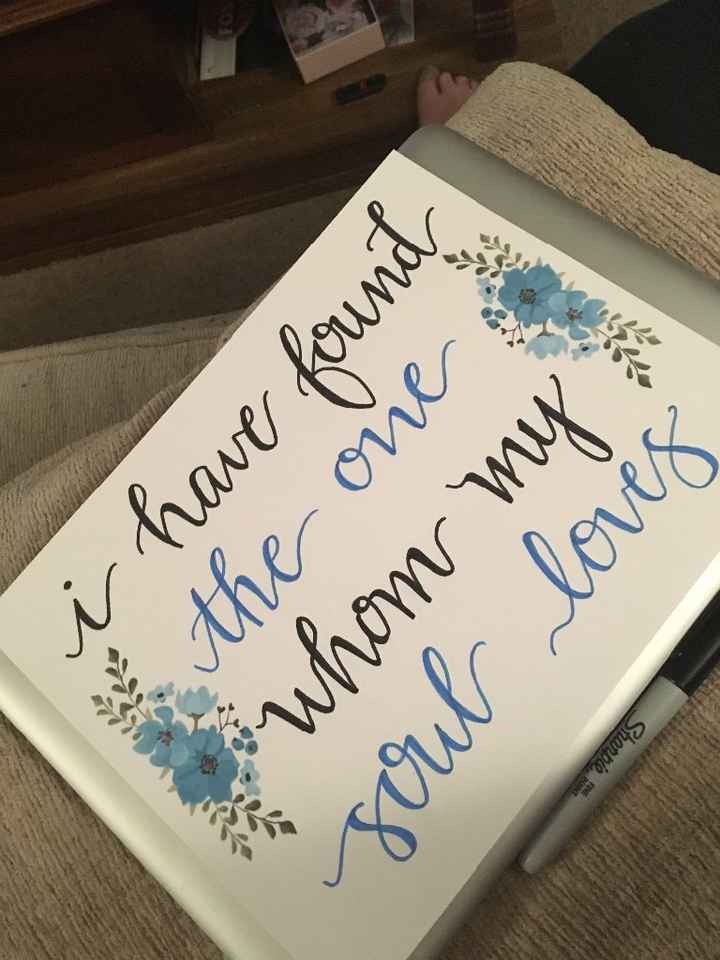 i have found
the one
whom my
soul loves
Sharpie
FINE POINT